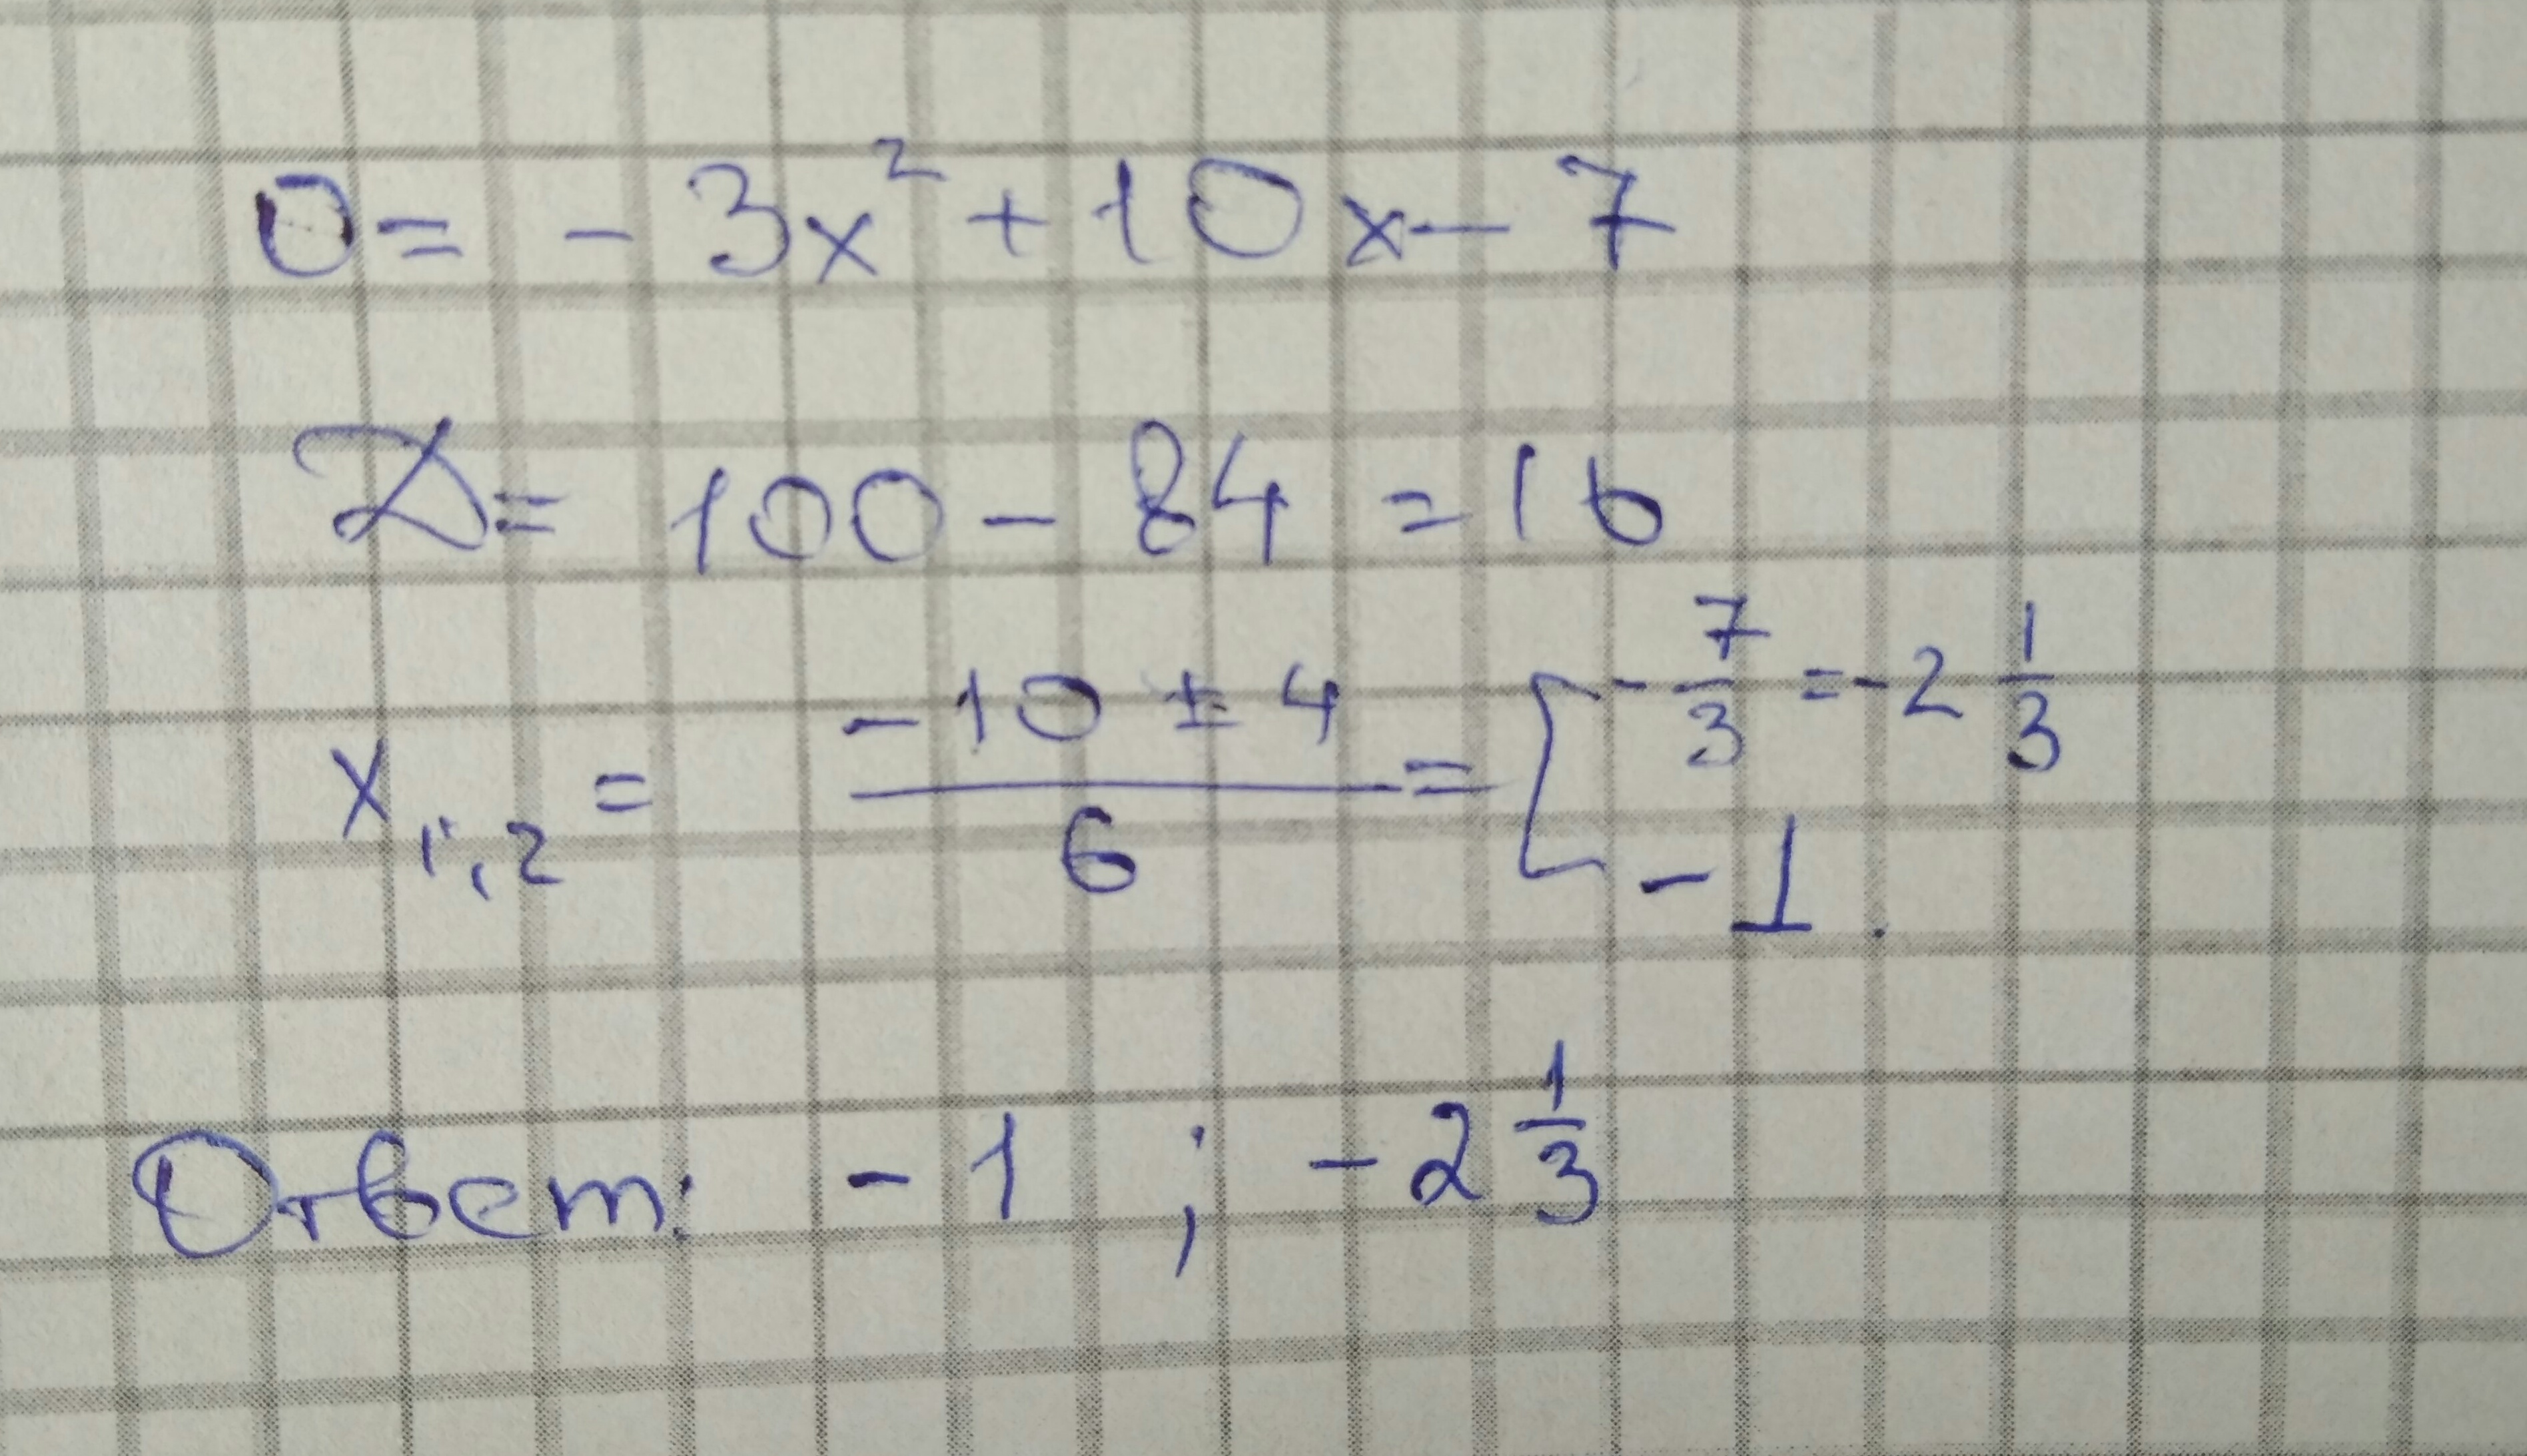 0 = - 3x² + 10x - 7
D = 100 - 84 = 16
x₁,₂ = (-10 ± 4)/6 = [ -7/3 = -2 1/3
-1.
Ответ: -1 ; -2 1/3